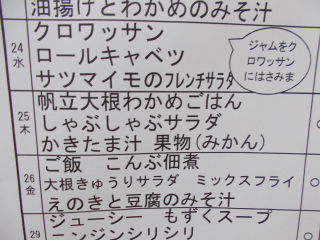 油揚げとわかめのみそ汁
24
水
クロワッサン
ロールキャベツ
サツマイモのフレンチサラダ
ジャムをク
ロワッサン
にはさみま
25
木
帆立大根わかめごはん
しゃぶしゃぶサラダ
かきたま汁 果物(みかん)
26
金
ご飯 こんぶ佃煮
大根きゅうりサラダ ミックスフライ
えのきと豆腐のみそ汁
29
ジューシー もずくスープ
ニンジンシリシリ